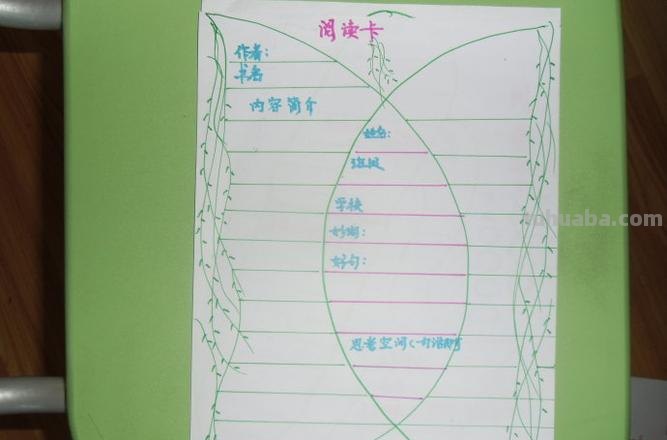 阅读卡
作者：
书名
内容简介
姓名：
班级
学校
好词：
好句：
思考空间（一句话
tuhuaba.com